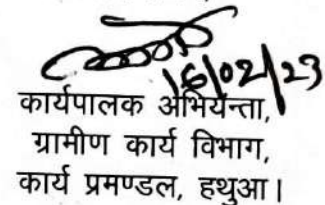 16/02/23
कार्यपालक अभियन्ता,
ग्रामीण कार्य विभाग,
कार्य प्रमण्डल, हथुआ।